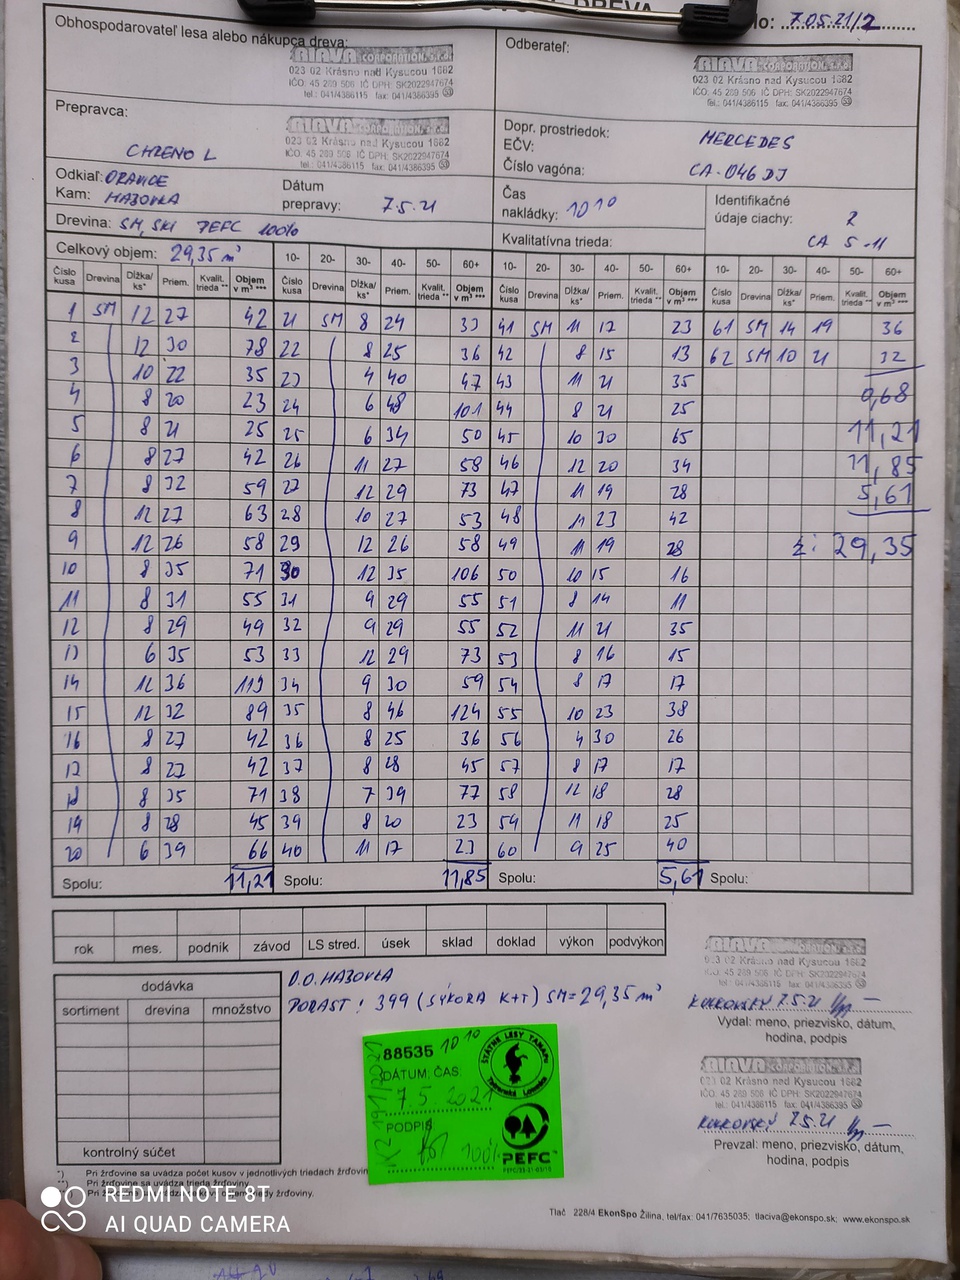 DREVA
7.05.21/2
Obhospodarovateľ lesa alebo nákupca dreva:
RIAVA CORPORATION, s.r.o.
023 02 Krásno nad Kysucou 1682
IČO: 45 289 506 IČ DPH: SK2022947674
tel.: 041/4386115 fax: 041/4386395
Odberateľ:
RIAVA CORPORATION, s.r.o.
023 02 Krásno nad Kysucou 1682
IČO: 45 289 506 IČ DPH: SK2022947674
tel.: 041/4386115 fax: 041/4386395
Prepravca:
CHZENO L
RIAVA CORPORATION, s.r.o.
023 02 Krásno nad Kysucou 1682
IČO: 45 289 506 IČ DPH: SK2022947674
tel.: 041/4386115 fax: 041/4386395
Dopr. prostriedok: MERCEDES
EČV:
Číslo vagóna: CA-046DJ
Odkiaľ: ORAVICE
Kam: HAJOVKA
Dátum prepravy: 7.5.21
Čas nakládky: 10 10
Identifikačné údaje ciachy: 2
CA 5-11
Drevina: SM, SKI PEFC 100%
Kvalitatívna trieda:
Celkový objem: 29,35 m³
10- 20- 30- 40- 50- 60+ 10- 20- 30- 40- 50- 60+ 10- 20- 30- 40- 50- 60+
Číslo kusa Drevina Dĺžka/ks* Priem. Kvalit. trieda ** Objem v m³ *** Číslo kusa Drevina Dĺžka/ks* Priem. Kvalit. trieda ** Objem v m³ *** Číslo kusa Drevina Dĺžka/ks* Priem. Kvalit. trieda ** Objem v m³ *** Číslo kusa Drevina Dĺžka/ks* Priem. Kvalit. trieda ** Objem v m³ ***
1 SM 12 27 42 21 SM 8 24 33 41 SM 11 17 23 61 SM 14 19 36
2 12 30 78 22 8 25 36 42 8 15 13 62 SM 10 21 32
3 10 22 35 23 4 40 47 43 11 21 35
4 8 20 23 24 6 48 101 44 8 21 25 0,68
5 8 21 25 25 6 34 50 45 10 30 65 11,21
6 8 27 42 26 11 27 58 46 12 20 34 11,85
7 8 32 59 27 12 29 73 47 11 19 28 5,61
8 12 27 63 28 10 27 53 48 11 23 42
9 12 26 58 29 12 26 58 49 11 19 28 Σ: 29,35
10 8 35 71 30 12 35 106 50 10 15 16
11 8 31 55 31 9 29 55 51 8 14 11
12 8 29 49 32 9 29 55 52 11 21 35
13 6 35 53 33 12 29 73 53 8 16 15
14 12 36 113 34 9 30 59 54 8 17 17
15 12 32 89 35 8 46 124 55 10 23 38
16 8 27 42 36 8 25 36 56 4 30 26
17 8 27 42 37 8 28 45 57 8 17 17
18 8 35 71 38 7 39 77 58 12 18 28
19 8 28 45 39 8 20 23 59 11 18 25
20 6 39 66 40 11 17 23 60 9 25 40
Spolu: 11,21 Spolu: 11,85 Spolu: 5,61 Spolu:
rok mes. podnik závod LS stred. úsek sklad doklad výkon podvýkon
RIAVA CORPORATION, s.r.o.
023 02 Krásno nad Kysucou 1682
IČO: 45 289 506 IČ DPH: SK2022947674
tel.: 041/4386115 fax: 041/4386395
7.5.21
Vydal: meno, priezvisko, dátum,
hodina, podpis
dodávka
sortiment drevina množstvo
kontrolný súčet
D.O. HAJOVKA
PORAST: 399 (SÝKORA K+T) SM=29,35 m³
88535 10 10
DÁTUM, ČAS:
7.5.2021
PODPIS
100%
ŠTÁTNE LESY TANAPu
Tatranská Lomnica
PEFC
RIAVA CORPORATION, s.r.o.
023 02 Krásno nad Kysucou 1682
IČO: 45 289 506 IČ DPH: SK2022947674
tel.: 041/4386115 fax: 041/4386395
7.5.21
Prevzal: meno, priezvisko, dátum,
hodina, podpis
*) Pri žrďovine sa uvádza počet kusov v jednotlivých triedach žrďovin
Pri žrďovine sa uvádza trieda žrďoviny.
REDMI NOTE 8T
AI QUAD CAMERA
Tlač 228/4 EkonSpo Žilina, tel/fax: 041/7635035; tlaciva@ekonspo.sk; www.ekonspo.sk